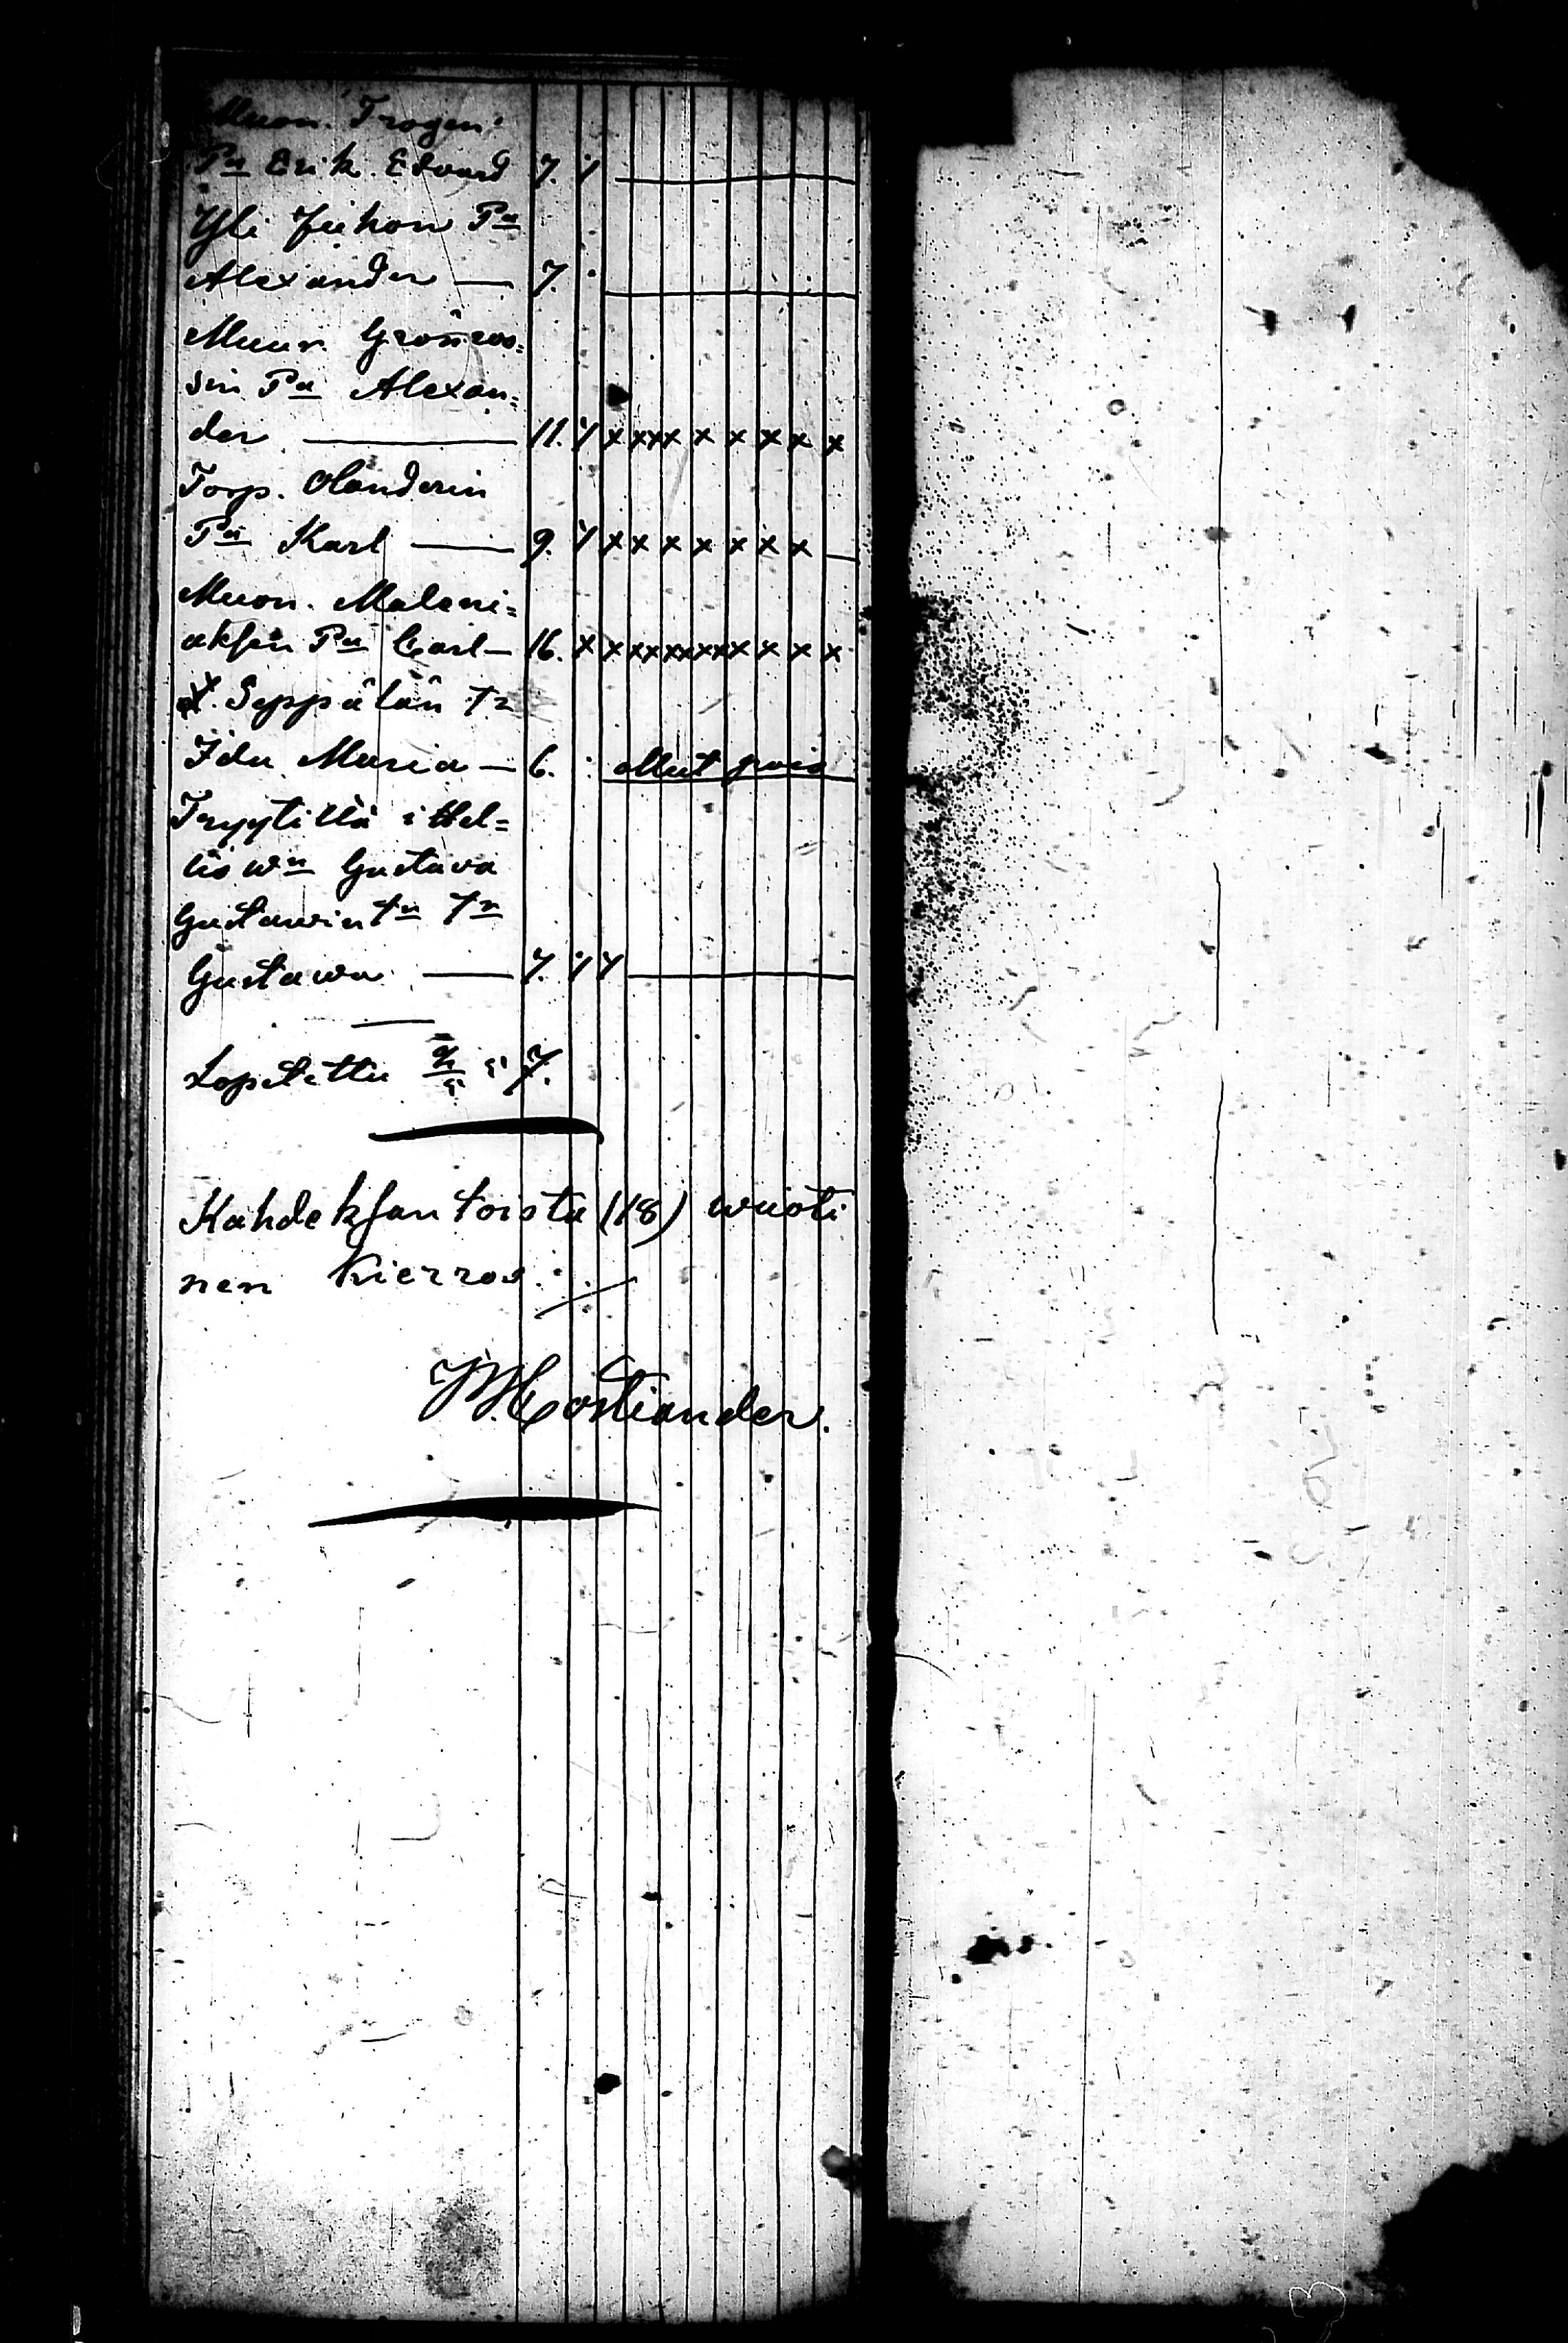 Muon. Trogen:
Pa Erik. Edvard 7. y
Yli Juhon Pa
Alexander — 7.
Muur. Grönroo=
sin Pa Alexan=
der — 11. y x x x x x x x x x
Torp. Olanderin
Pa Karl — 9. y x x x x x x x —
Muon. Maleni=
aksen Pa Carl — 16. x x x x x x x x x x x x x
Seppälän Tr
Ida Maria — 6. : ollut pois
Tryytillä ittel=
lis wn Gustava
Gustawin tn Tr
Gustawa — 7. y y
Lopetettu 7.
Kahdeksantoista (18) wuoti
nen kierros.
Costiander.